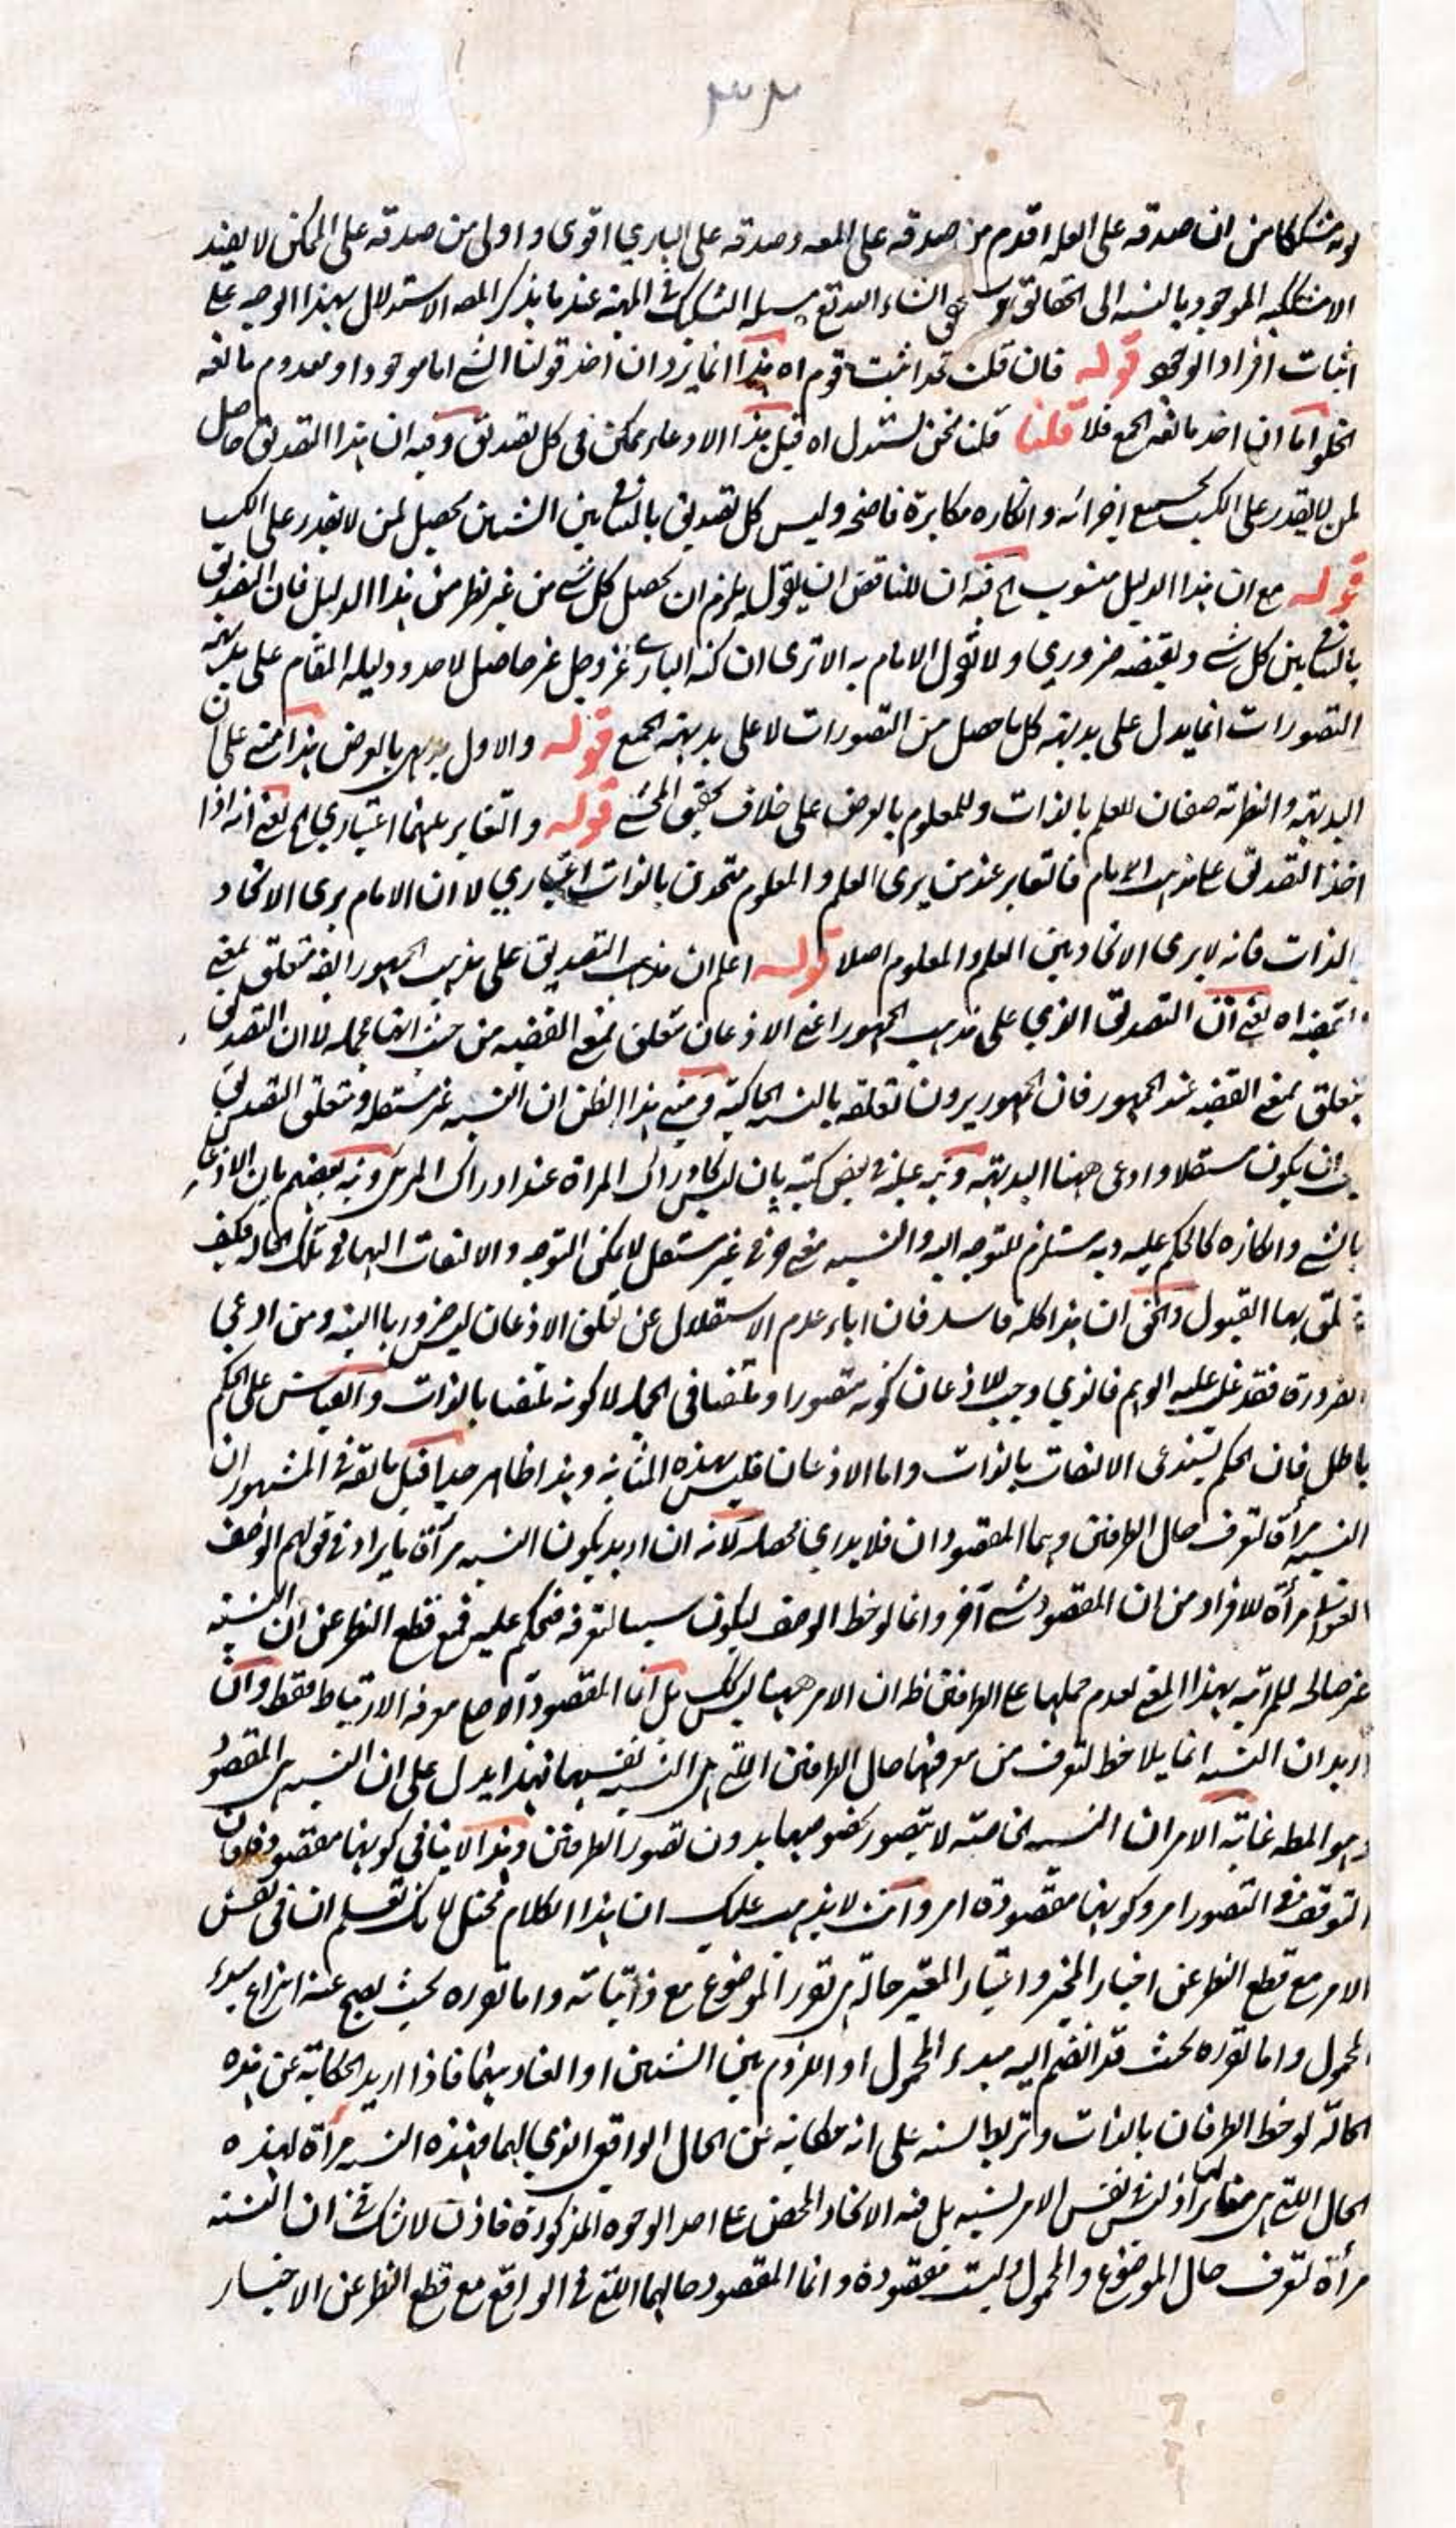 ٣٢
كونه مشككا من ان صدقه على العله اقدم من صدقه على المعه وصدقه على الباري اقوى و اولى من صدقه على الممكن لا يفيد
الموجود بالنسبه الى الحقائق ان شاء الله تع مسئلة التشكيك في المهية عند ما يذكر المصه الاستدلال بهذا الوجه على
اثبات افراد الوجود قوله فان قلت قد اثبت قوم اه هذا انما يرد ان اخذ قولنا الشي اما موجود او معدوم مانعه
الخلو اما ان اخذ مانعه الجمع فلا قلنا قلت نحن نستدل اه قيل هذا الادعاء ممكن في كل تصديق وفيه ان هذا التصديق حاصل
لمن لا يقدر على الكسب بجميع اجزائه و انكاره مكابرة فاضحه وليس كل تصديق بالتنافي بين الشيئين يحصل لمن لا يقدر على الكسب
قوله مع ان هذا الدليل منسوب الخ فيه ان للناقض ان يقول يلزم ان يحصل كل شي من غير نظر من هذا الدليل فان التصديق
بالتنافي بين كل شي ونقيضه ضروري ولا يقول الامام به الا ترى ان كنه الباري عز وجل غير حاصل لاحد ودليله المقام على بديهية
التصورات انما يدل على بديهة كل ما حصل من التصورات لا على بديهة الجميع قوله والاول بديهي بالعرض هذا مبني على ان
البديهة والنظرية صفتان للعلم بالذات وللمعلوم بالعرض على خلاف تحقيق المحشي قوله والتغاير بينهما اعتباري الخ يعني انه اذا
اخذ التصديق على مذهب الامام فالتغاير عند من يرى العلم والمعلوم متحدين بالذات اعتباري لا ان الامام يرى الاتحاد
بالذات فانه لا يرى الاتحاد بين العلم والمعلوم اصلا قوله اعلم ان مذهب التصديق على مذهب الجمهور ايضه متعلق بمعنى
القضيه اه يعني ان التصديق الذي على مذهب الجمهور اعني الاذعان متعلق بمعنى القضيه من حيث انها مجمله لا ان التصديق
يتعلق بمعنى القضيه عند الجمهور فان الجمهور يرون تعلقه بالنسبه الحاكية ومبنى هذا الظن ان النسبه غير مستقله ومتعلق التصديق
يجب ان يكون مستقلا وادعى ههنا البديهة ونبه عليه في بعض كتبه بان ليس كادراك المرآة عند ادراك المرئي ونبه بعضهم بان الاذعان
بالشي وانكاره كالحكم عليه وبه مستلزم للتوجه اليه والنسبه معنى حرفي غير مستقل لا يمكن التوجه والالتفات اليها في تلك الحاله فكيف
يتعلق بها القبول والحق ان هذا كله فاسد فان اباء عدم الاستقلال عن تعلق الاذعان ليس ضروريا البته ومن ادعى
الضرورة فقد غلب عليه الوهم فالذي وجب للاذعان كونه متصورا وملتفتا في الجمله لا كونه ملتفتا بالذات والقياس على الحكم
باطل فان الحكم يستدعى الالتفات بالذات واما الاذعان فليس بهذه المثابة وهذا ظاهر جدا قيل ما تقرر في المشهور ان
النسبه مرآة لتعرف حال الطرفين وهما المقصودان فلا يدرى محصله لانه ان اريد بكون النسبه مرآة ما يراد في قولهم الوصف
العنواني مرآة للافراد من ان المقصود شي آخر وانما لوحظ الوصف ليكون سببا لتعرفه فيحكم عليه فمع قطع النظر عن ان النسبه
غير صالحه للمرآتيه بهذا المعنى لعدم حملها على الطرفين ظ ان الامر ههنا ليس كك بل انما المقصود الاصلي معرفه الارتباط فقط وان
اريد ان النسبه انما يلاحظ لتعرف من معرفتها حال الطرفين التي هي النسبه نفسها فهذا يدل على ان النسبه هي المقصود
وهو المط غاية الامر ان النسبه الخاصة لا يتصور بخصوصها بدون تصور الطرفين وهذا لا ينافي كونها مقصودة فان
التوقف في التصور امر وكونها مقصودة امر وانت لا يذهب عليك ان هذا الكلام مختل لانك تعلم ان في نفس
الامر مع قطع النظر عن اخبار المخبر واعتبار المعتبر حالة هي تقرر الموضوع مع ذاتياته واما تقرره بحيث يصح عنه انتزاع مبدء
المحمول واما تقرره بحيث قد انضم اليه مبدء المحمول او اللزوم بين الشيئين او العناد بينهما فاذا اريد الحكاية عن هذه
الحالة لوحظ الطرفان بالذات واربط النسبه على انه حكاية عن الحال الواقع الذي لهما فهذه النسبه مرآة لهذه
الحال التي هي مغايرة لها اذ ليس في نفس الامر نسبه بل فيه الاتحاد المحض على احد الوجوه المذكورة فاذن لا شك في ان النسبه
مرآة لتعرف حال الموضوع والمحمول وليست مقصودة وانما المقصود حالهما التي في الواقع مع قطع النظر عن الاخبار